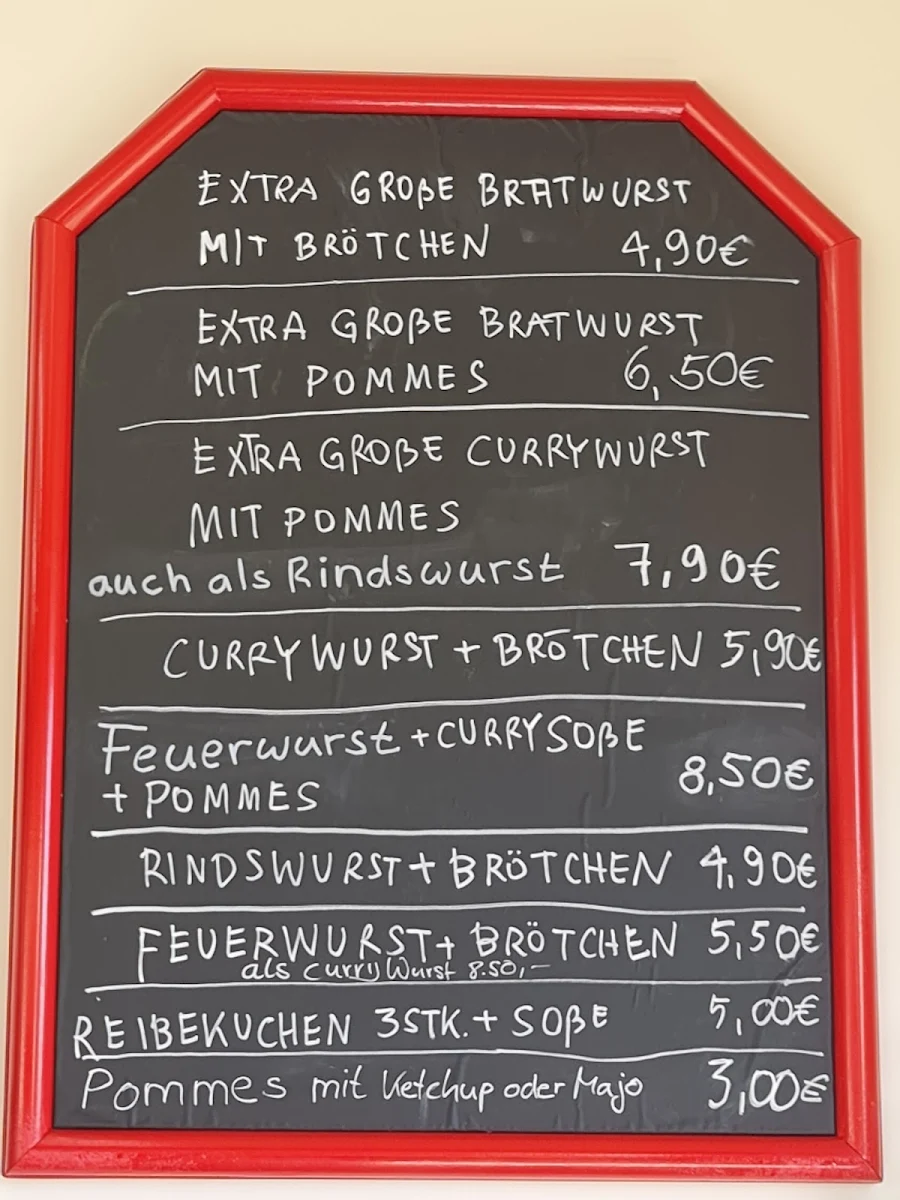 EXTRA GROßE BRATWURST
MIT BRÖTCHEN 4,90€
EXTRA GROßE BRATWURST
MIT POMMES 6,50€
EXTRA GROßE CURRYWURST
MIT POMMES
auch als Rindswurst 7,90€
CURRYWURST + BRÖTCHEN 5,90€
Feuerwurst + CURRYSOßE
+ POMMES 8,50€
RINDSWURST + BRÖTCHEN 4,90€
FEUERWURST + BRÖTCHEN 5,50€
als Curry Wurst 8.50,-
REIBEKUCHEN 3STK. + SOßE 5,00€
Pommes mit Ketchup oder Majo 3,00€